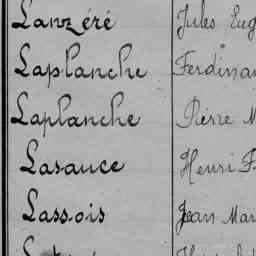 Lanzéré Jules Eug
Laplanche Ferdinan
Laplanche Pierre M
Lasauce Henri F
Lassois Jean Mar